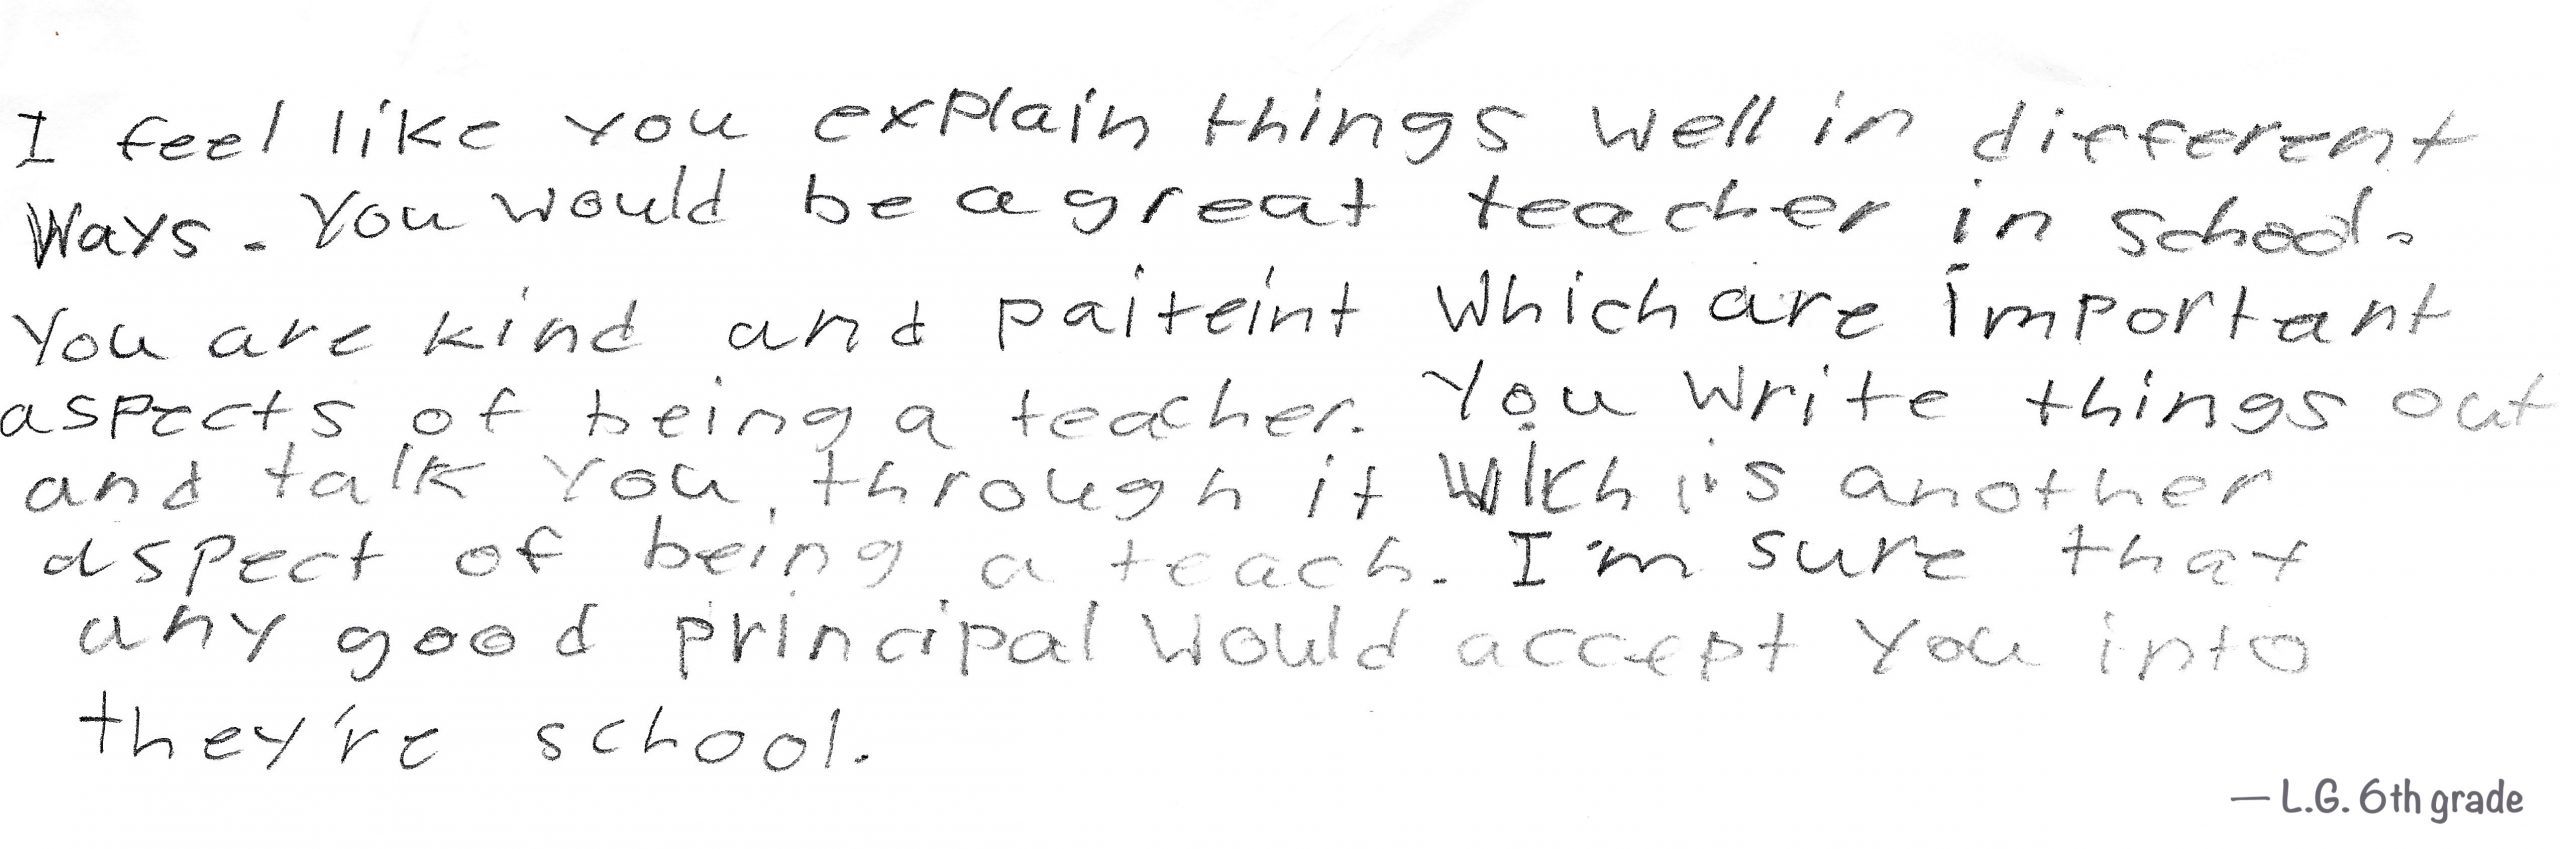 I feel like you explain things well in different
Ways. You would be a great teacher in school.
You are kind and paiteint which are important
aspects of being a teacher. You write things out
and talk you through it wich is another
aspect of being a teach. I'm sure that
any good principal would accept you into
they're school.
— L.G. 6th grade